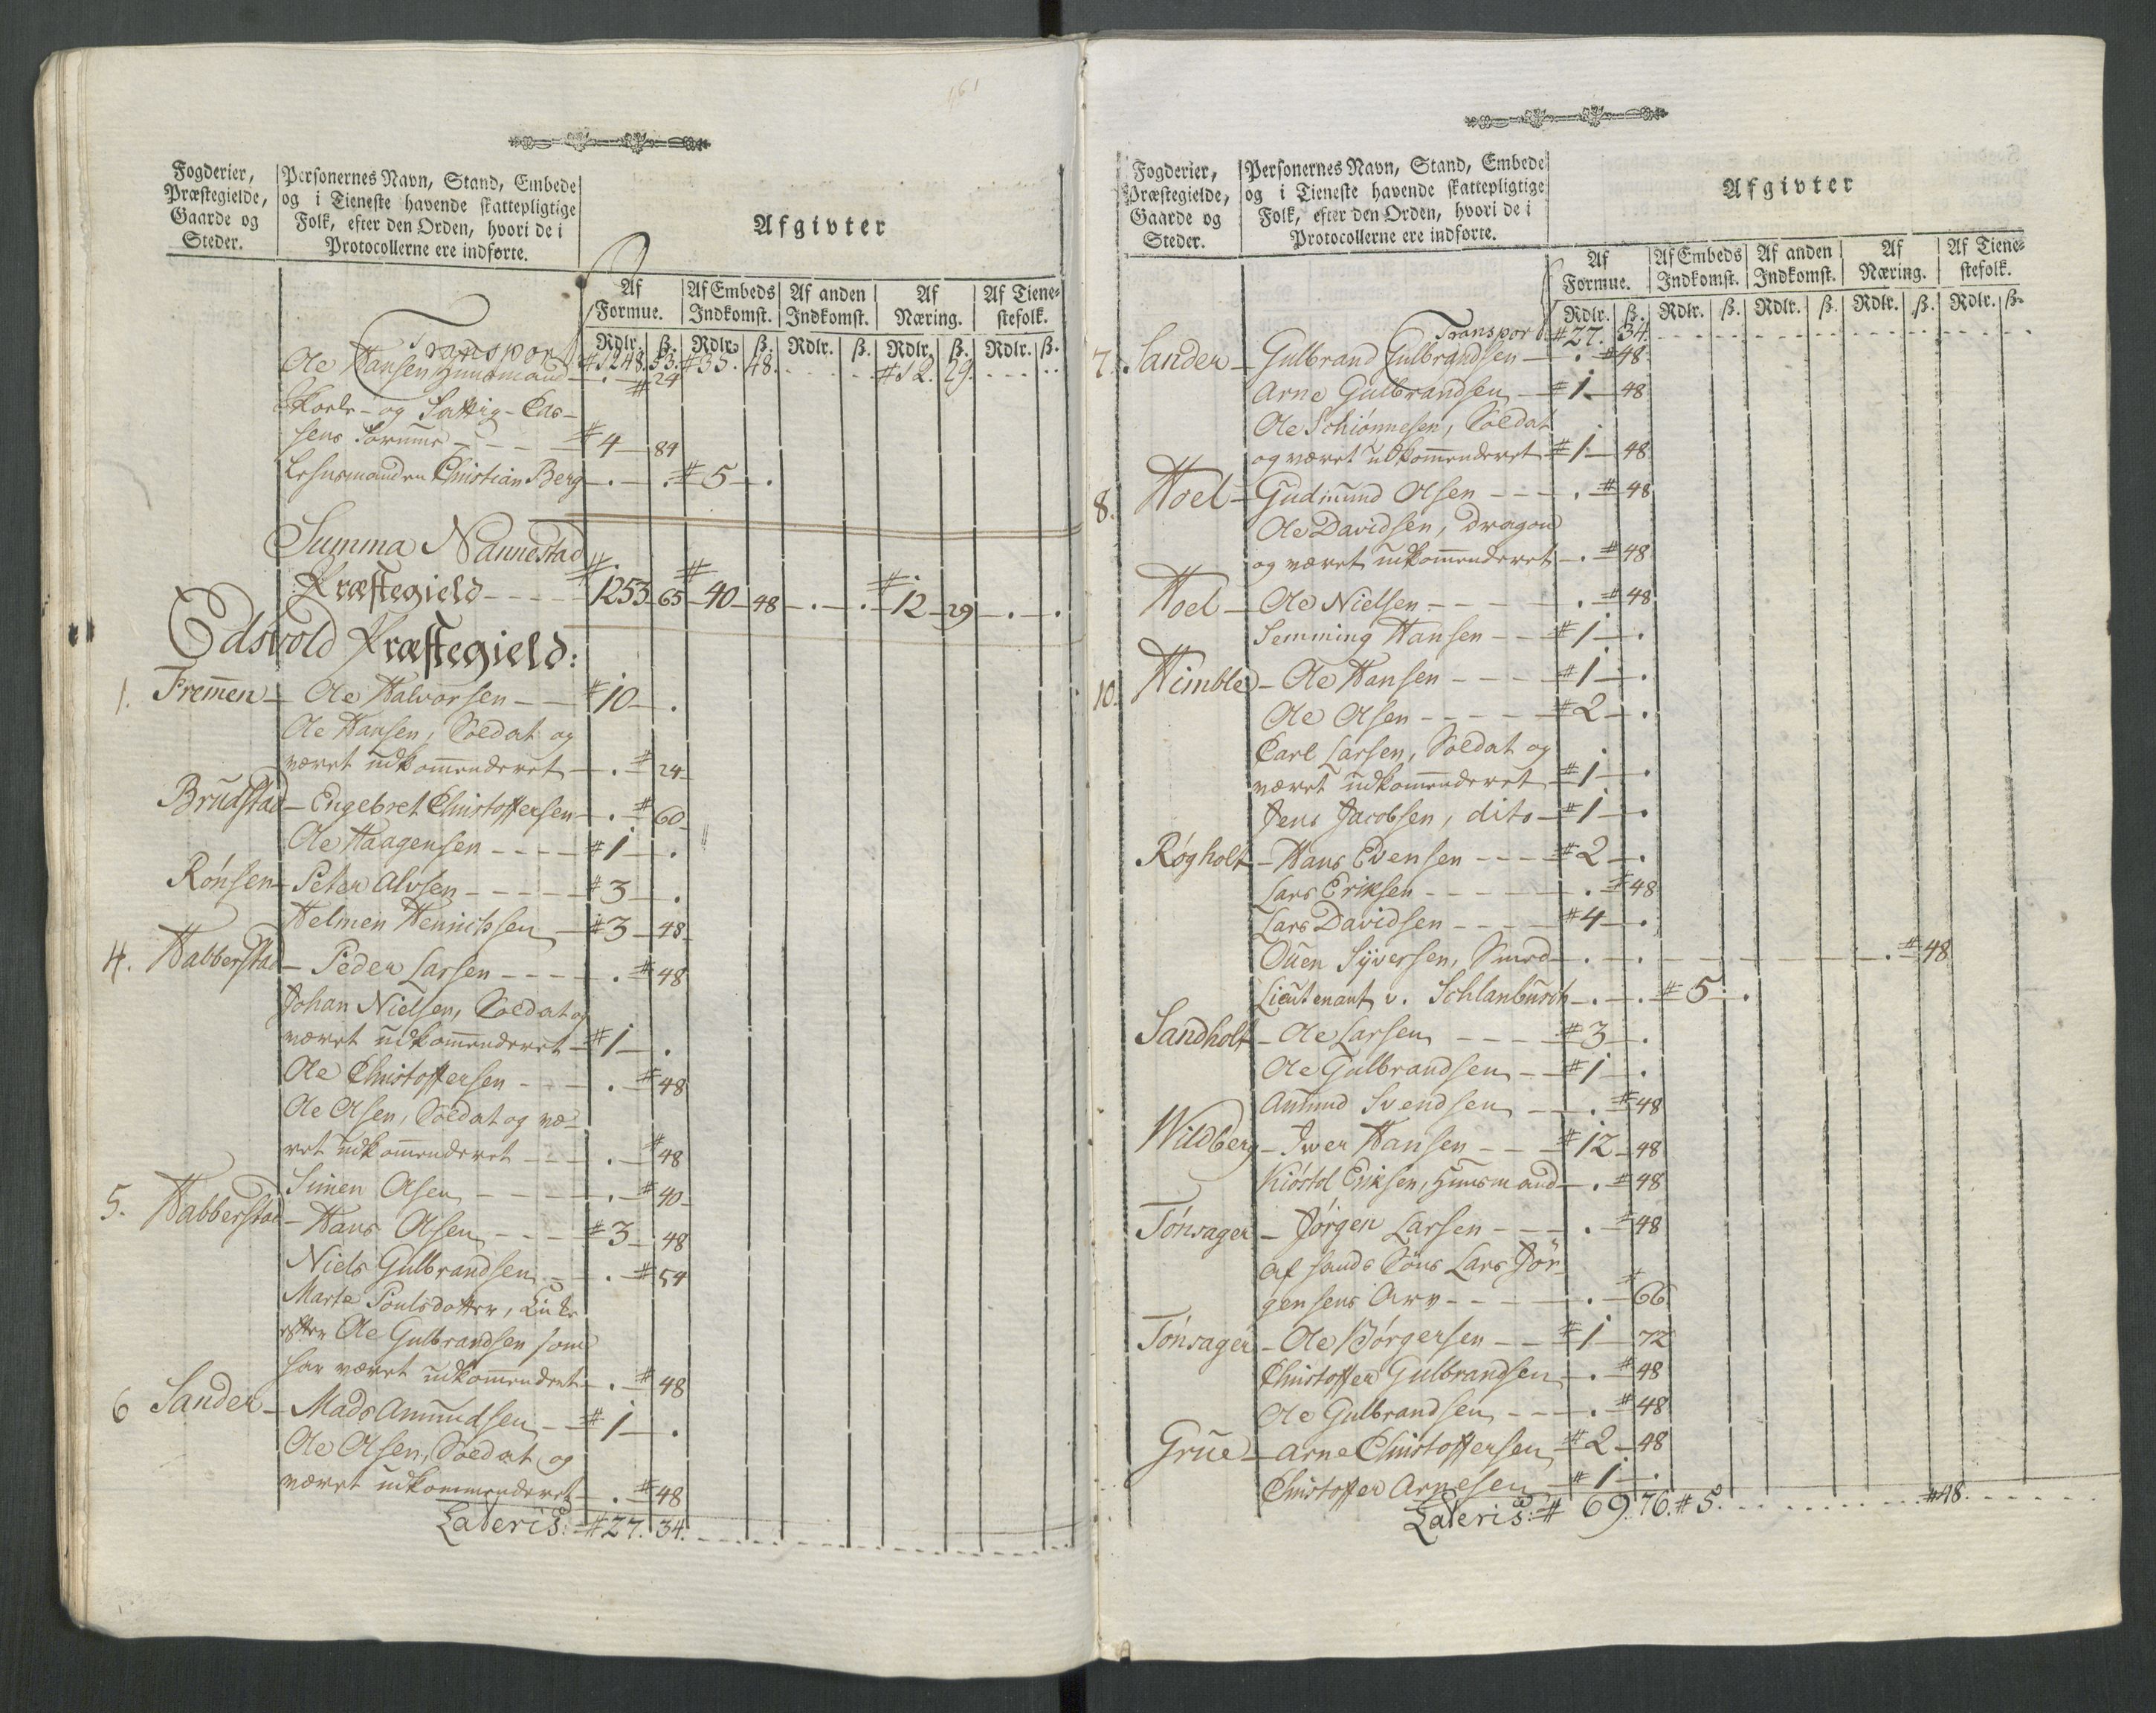 161
Fogderier,
Præstegielde,
Gaarde og
Steder.
Personernes Navn, Stand, Embede
og i Tieneste havende skattepligtige
Folk, efter den Orden, hvori de i
Protocollerne ere indførte.
Afgivter
Af Formue. Af Embeds Indkomst. Af anden Indkomst. Af Næring. Af Tienestefolk.
Rdlr. ß. Rdlr. ß. Rdlr. ß. Rdlr. ß. Rdlr. ß.
Transport # 1248. 53. # 35. 48. # 12. 29.
Ole Hansen Huusmand - . - # 24
Skole- og Fattig-Cas-
sens Formue - - - # 4 - 84
Lehnsmanden Christian Berg - . - . # 5 - .
Summa Nannestad
Præstegield - - - # 1253 - 65 - # 40 - 48 - . - . - # 12 - 29 - . - .
Edsvold Præstegield:
1. Fremen - Ole Halvorsen - - # 10 - .
Ole Hansen, Soldat og
været udkommenderet - . - # 24 -
Brudstad - Engebret Christoffersen - . # 60 -
Ole Haagensen - - - - # 1 - .
Rönsen - Peter Alvsen - - - - - # 3 - .
Helmen Henrichsen - # 3 - 48 -
4. Habberstad - Peder Larsen - - - - . # 48
Johan Nielsen, Soldat og
været udkommenderet - # 1 - .
Ole Christoffersen - - - . # 48
Ole Olsen, Soldat og væ-
ret udkommenderet - - - . # 48
Simen Olsen - - - - . # 40 -
5. Habberstad - Hans Olsen - - - # 3 - 48
Niels Gulbrandsen - - . # 54
Marte Poulsdatter, Enke
efter Ole Gulbrandsen som
har været udkommendert - . # 48
6 Sander - Mads Amundsen - - # 1 - .
Ole Olsen, Soldat og
været udkommenderet - . # 48
Lateris: # 27. 34.
Fogderier,
Præstegielde,
Gaarde og
Steder.
Personernes Navn, Stand, Embede
og i Tieneste havende skattepligtige
Folk, efter den Orden, hvori de i
Protocollerne ere indførte.
Afgivter
Af Formue. Af Embeds Indkomst. Af anden Indkomst. Af Næring. Af Tienestefolk.
Rdlr. ß. Rdlr. ß. Rdlr. ß. Rdlr. ß. Rdlr. ß.
Transport # 27. 34.
7. Sander - Gulbrand Gulbrandsen - . # 48
Arne Gulbrandsen - # 1 - 48
Ole Schiönnesen, Soldat
og været udkommenderet # 1 - 48
8. Hoel - Gudmund Olsen - - - . # 48
Ole Davidsen, Dragon
og været udkommenderet - . # 48
Hoel - Ole Nielsen - - - - . # 48
Semming Hansen - - # 1 - .
10. Himble - Ole Hansen - - - # 1 - .
Ole Olsen - - - - - # 2 - .
Carl Larsen, Soldat og
været udkommenderet - # 1 - .
Jens Jacobsen, dito - # 1 - .
Røgholt - Hans Evensen - - - # 2 - .
Lars Eriksen - - - - - . # 48
Lars Davidsen - - - - # 4 - .
Ouen Syversen, Smed - . - . - - - . # 48
Lieutenant v. Schlanbusch - . - . # 5 - .
Sandholt - Ole Larsen - - - # 3 - .
Ole Gulbrandsen - - # 1 - .
Amund Svendsen - - . # 48
Wildberg - Iver Hansen - - # 12 - 48
Kiöstol Eriksen, Huusmand - . # 48
Tönsager - Jørgen Larsen - - - . # 48
Af hands Söns Lars Jör-
gensens Arv - - - - . # 66
Tönsager - Ole Jörgersen - - # 1 - 72
Christoffer Gulbrandsen - . # 48
Ole Gulbrandsen - - - . # 48
Grue - Arne Christoffersen # 2 - 48
Christoffer Arnesen # 1 - .
Lateris: # 69. 76. # 5. # 48.